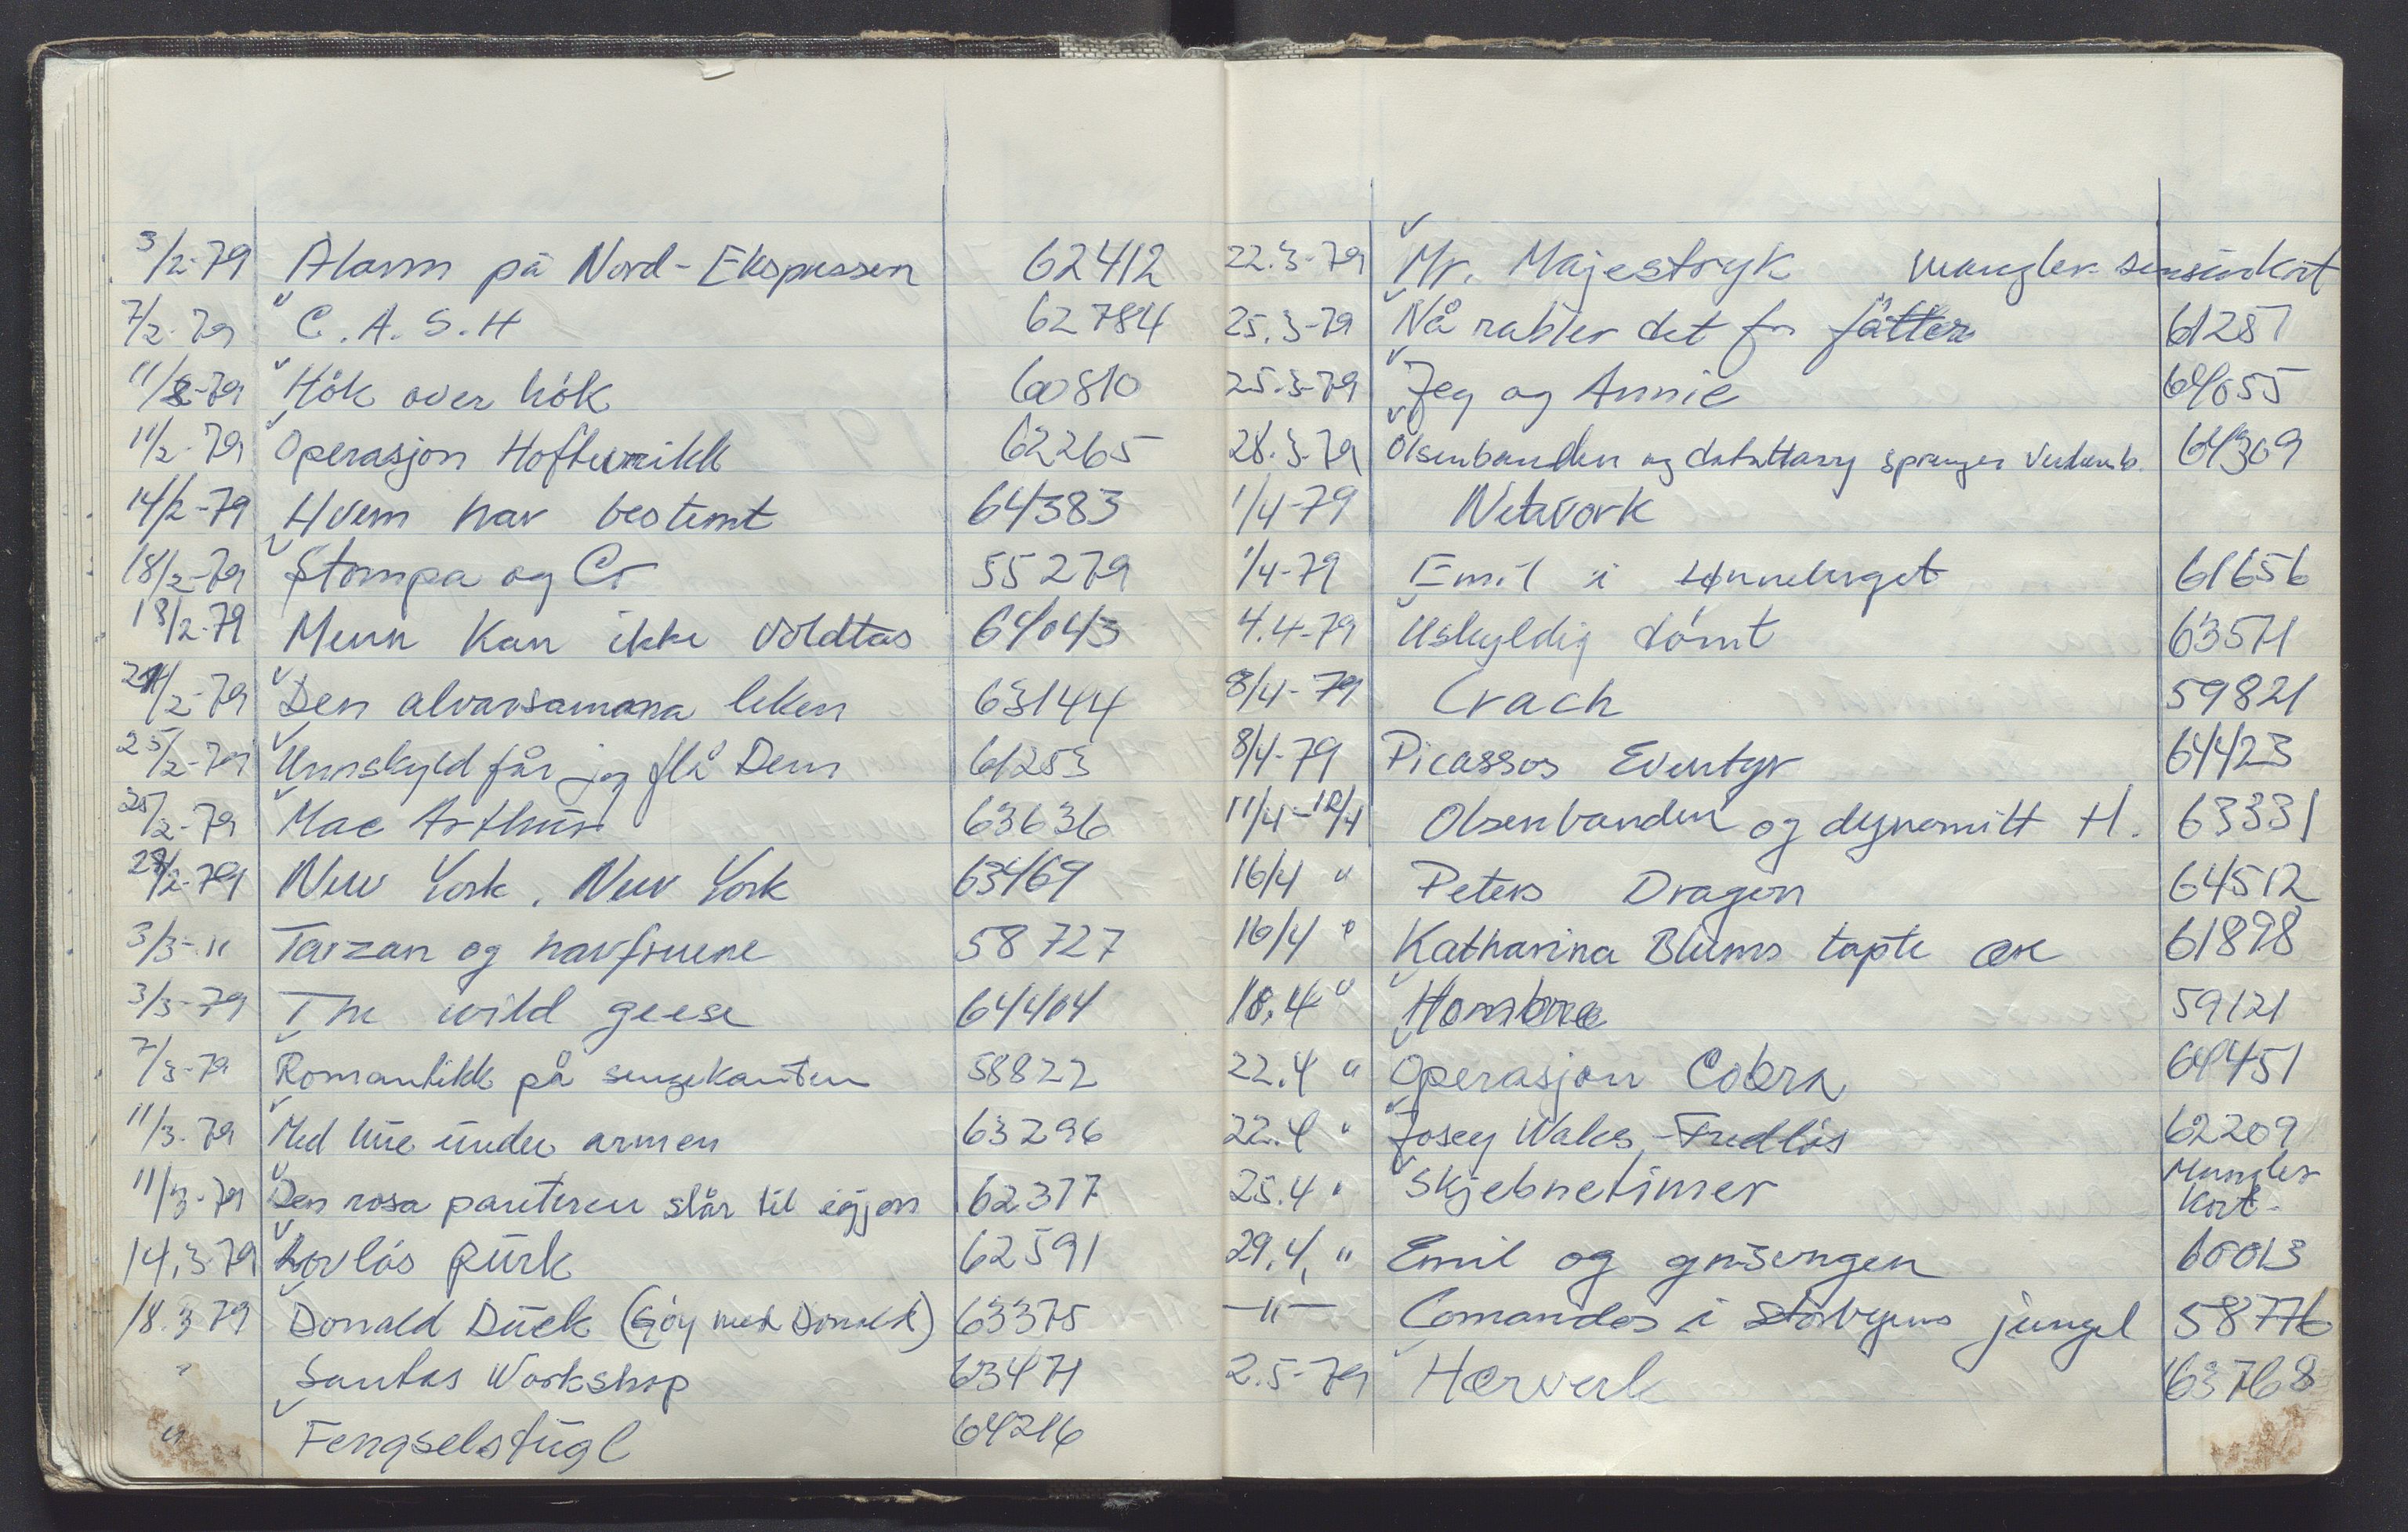 3/2-79 Alarm på Nord-Ekspressen 62412
7/2-79 C.A.S.H 62784
11/2-79 Hök over hök 60810
11/2-79 Operasjon 62265
14/2-79 Hvem har bestemt 64383
18/2-79 Stompa og Co 55279
18/2-79 Menn kan ikke voldtas 64043
21/2-79 Den alvarsamma leken 63144
25/2-79 Unnskyld får jeg flå Dem 61253
25/2-79 Mac Arthur 63636
28/2-79 New York, New York 63469
3/3-" Tarzan og havfruene 58727
3/3-79 The wild geese 64404
7/3-79 Romantikk på sengekanten 58822
11/3-79 Med lue under armen 63296
11/3-79 Den rosa panteren slår til igjen 62377
14.3-79 Lovløs purk 62591
18.3 79 Donald Duck (Gøy med Donald) 63375
" Santas Workshop 63471
" Fengselsfugl 64216
22.3-79 Mr. Majestryk mangler sensurkort
25.3-79 Nå rabler det for fatter 61287
25.3-79 Jeg og Annie 64055
28.3-79 Olsenbanden og 64309
1/4-79 Network
1/4-79 Emil i Lønneberget 61656
4.4-79 Uskyldig dømt 63571
8/4-79 Crach 59821
8/4-79 Picassos Eventyr 64423
11/4-12/4 Olsenbanden og dynamitt H. 63331
16/4 " Peters Dragon 64512
16/4 " Katharina Blums tapte ære 61898
18.4 " Hombre 59121
22.4 " Operasjon Cobra 64451
22.4 " Josey Wales - Fredløs 62209
25.4 " Skjebnetimer Mangler
Kort.
29.4, " Emil og grisungen 60013
-"- Comandos i storbyens jungel 58776
2.5-79 Hærverk 63768